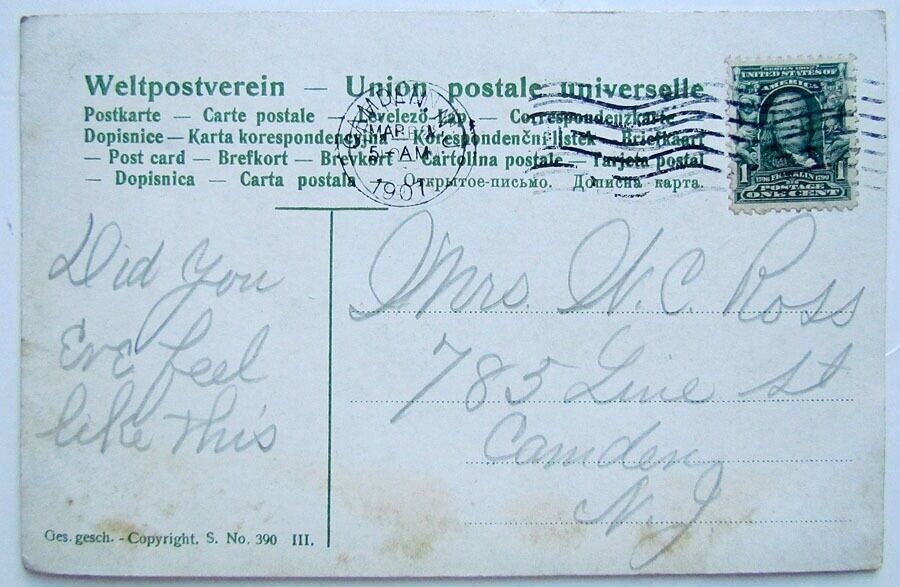 Weltpostverein — Union postale universelle
Postkarte — Carte postale — Levelező-Lap — Correspondenzkarte
Dopisnice — Karta korespondencyjna — Korespondenční lístek — Briefkaart
— Post card — Brefkort — Brevkort — Cartolina postale — Tarjeta postal
— Dopisnica — Carta postala — Открытое-письмо. Дописна карта.
CAMDEN N.J.
MAR
5 AM
1907
SERIES 1902
UNITED STATES OF
AMERICA
1 1706 FRANKLIN 1790 1
POSTAGE
ONE CENT
Did You
Eve feel
like This
Mrs. W. C. Ross
785 Line St
Camden,
N. J.
Ges. gesch. - Copyright. S. No. 390 III.